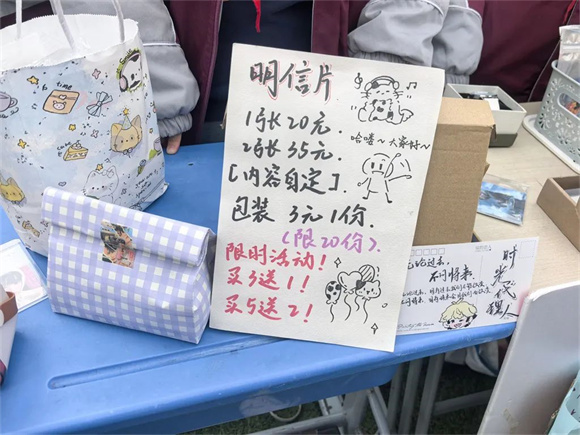 明信片
1张 20元.
2张 35元.
[内容自定].
包装 3元1份.
(限20份).
限时活动!
买3送1!
买5送2!
哈喽~大家好~
不问将来.
时光代理人